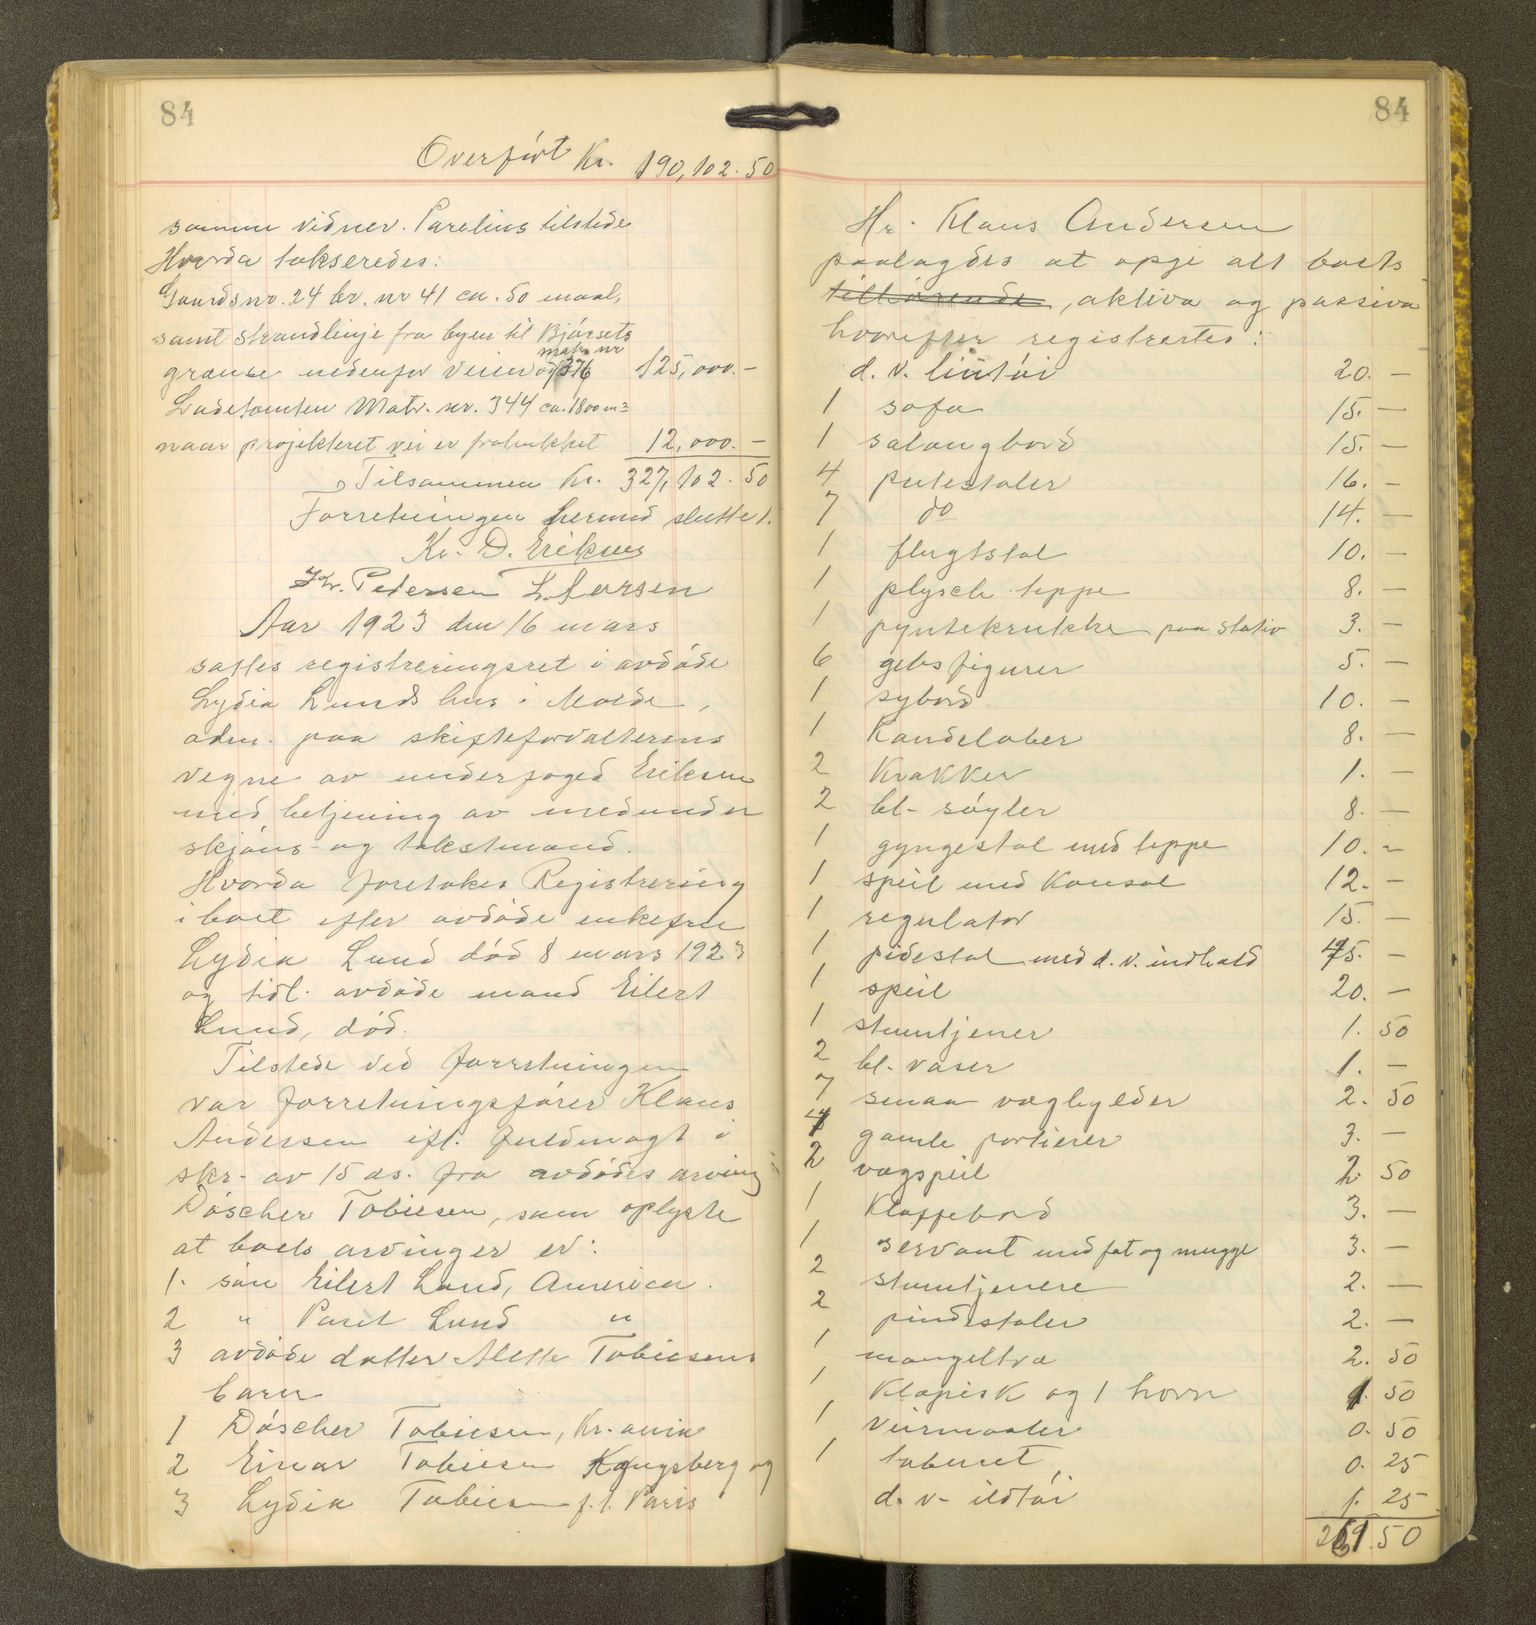 84
Overført Kr. 190,102.50
samme vidner. Parelius tilstede
Hvorda takseredes:
Gaardsnr. 24 br. nr 41 ca. 50 maal,
samt strandlinje fra byen til Bjørsets
matr. nr
grænse nedenfor veien og 376 125,000.-
Ladetomten Matr. nr. 344 ca. 1800 m2
naar projekteret vei er fratrukket 12,000.-
Tilsammen Kr. 327,102.50
Forretningen hermed sluttet.
Kr. D. Eriksen
Kr. Petersen L. Larsen
Aar 1923 den 16 mars
sattes registreringsret i avdøde
Lydia Lunds hus i Molde,
adm. paa skifteforvalterens
vegne av underfoged Eriksen
med betjening av medunder
skjøns- og takstmænd.
Hvorda foretokes Registrering
i boet efter avdøde enkefru
Lydia Lund død 8 mars 1923
og tidl. avdøde mand Eilert
Lund, død.
Tilstede ved forretningen
var forretningsfører Klaus
Andersen ifl. fuldmagt i
skr. av 15 ds. fra avdødes arving
Døscher Tobiesen, som oplyste
at boets arvinger er:
1. søn Eilert Lund, America.
2 " Parel Lund "
3 avdøde datter Alette Tobiesens
barn
1 Døscher Tobiesen, Kr.ania
2 Einar Tobiesen Kongsberg og
3 Lydia Tobiesen f.t. Paris
84
Hr. Klaus Andersen
paalagdes at opgi alt boets
tilhørende, aktiva og passiva
hvorefter registrertes:
d. v. lintøi 20. -
1 sofa 15. -
1 salongbord 15. -
4 putestoler 16. -
7 do 14. -
1 flugtstol 10. -
1 plysch teppe 8. -
1 pyntekrukke paa stativ 3. -
6 gibsfigurer 5. -
1 sybord 10. -
1 Kandelaber 8. -
2 Krakker 1. -
2 bl. søyler 8. -
1 gyngestol med teppe 10. -
1 speil med Konsol 12. -
1 regulator 15. -
1 pidestal med d. v. indhold 15. -
1 speil 20. -
1 stumtjener 1. 50
2 bl. vaser 1. -
7 smaa væghylder 2. 50
4 gamle portierer 3. -
2 vægspeil 2. 50
1 Klaffebord 3. -
1 servant med fat og mugge 3. -
2 stumtjenere 2. -
2 pindestoler 2. -
1 mangeltræ 2. 50
1 Klapisk og 1 horn 1. 50
1 Veirmaaler 0. 50
1 taburet 0. 25
d. v. ildtøi 1. 25
261.50